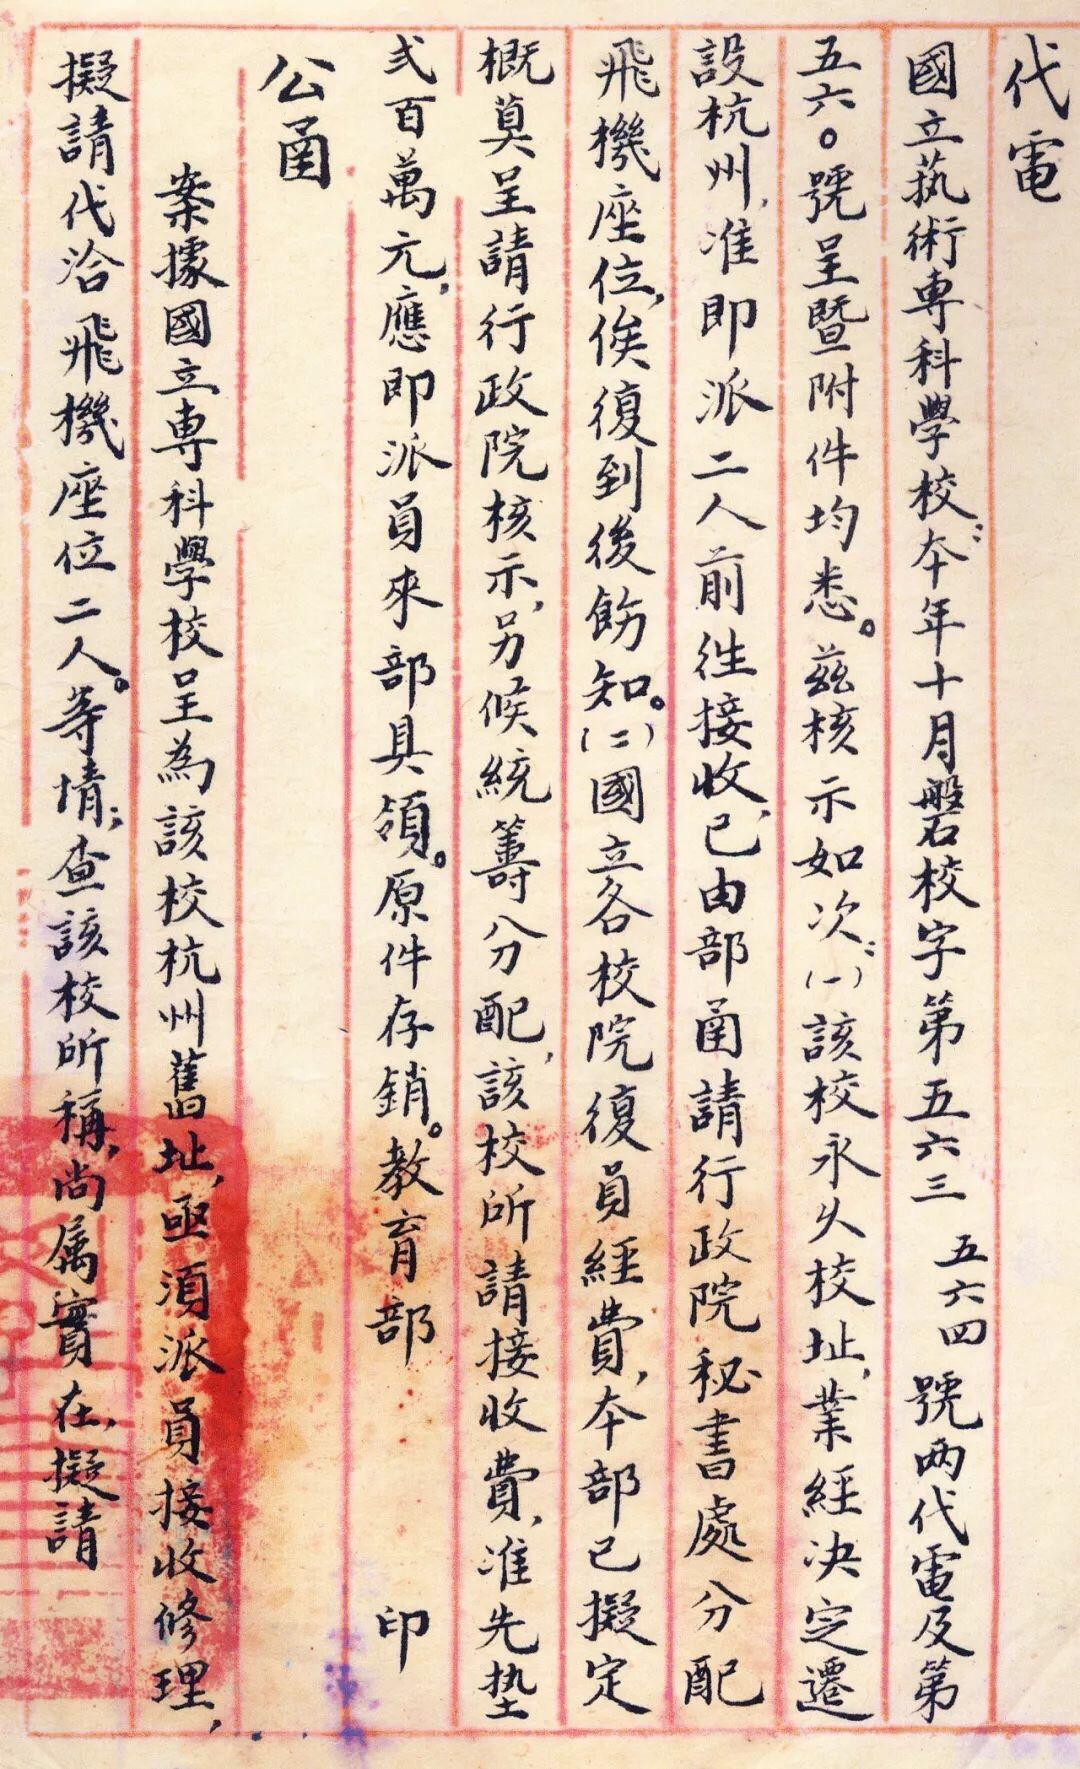 代電
國立藝術專科學校：本年十月磐校字第五六三　五六四　號两代電及第
五六〇號呈暨附件均悉。茲核示如次：(一)該校永久校址，業經决定遷
設杭州，准即派二人前往接收，已由部函請行政院秘書處分配
飛機座位，俟復到後飭知。(二)國立各校院復員經費，本部已擬定
概算呈請行政院核示，另候統籌分配，該校所請接收費，准先墊
弍百萬元，應即派員來部具領。原件存銷。教育部　印
公函
案據國立專科學校呈為該校杭州舊址，亟須派員接收修理，
擬請代洽飛機座位二人。等情；查該校所稱，尚属實在，擬請